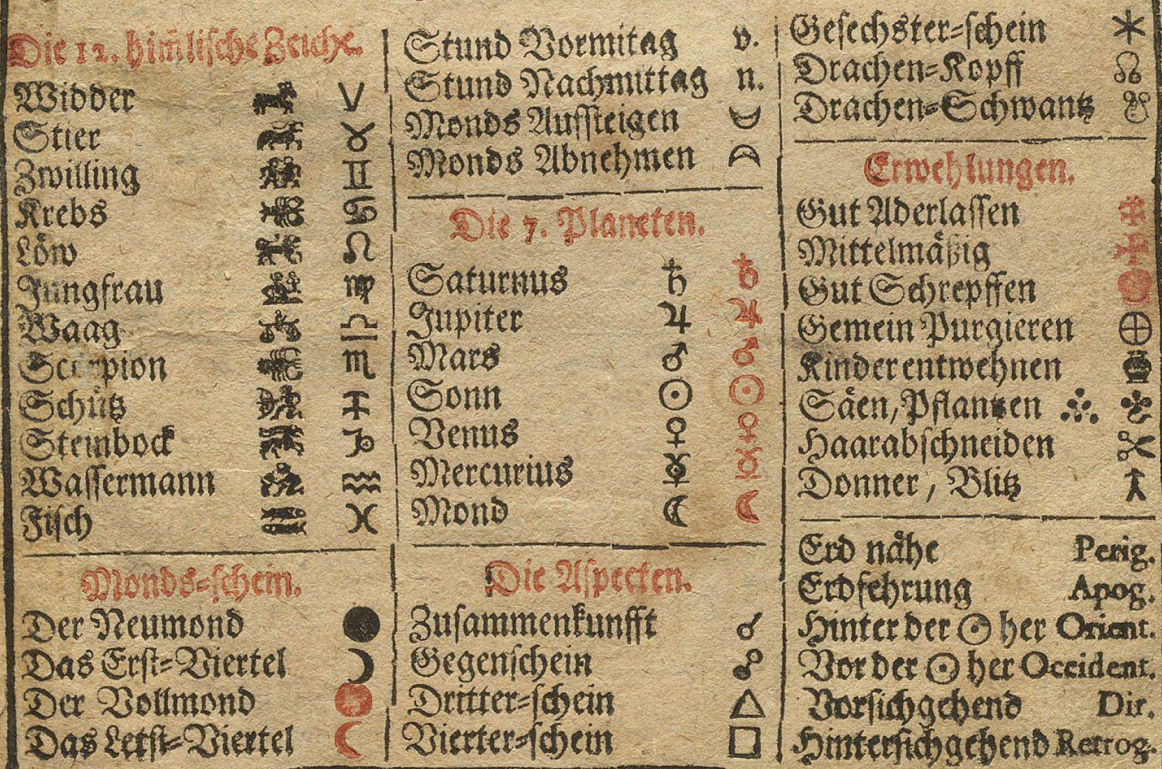 Die 12. him̃lische Zeichẽ.
Widder ♈
Stier ♉
Zwilling ♊
Krebs ♋
Löw ♌
Jungfrau ♍
Waag ♎
Scorpion ♏
Schütz ♐
Steinbock ♑
Wassermann ♒
Fisch ♓
Monds-schein.
Der Neumond
Das Erst-Viertel
Der Vollmond
Das Letst-Viertel
Stund Vormitag v.
Stund Nachmittag n.
Monds Auffsteigen
Monds Abnehmen
Die 7. Planeten.
Saturnus ♄ ♄
Jupiter ♃ ♃
Mars ♂ ♂
Sonn ☉ ☉
Venus ♀ ♀
Mercurius ☿ ☿
Mond ☾ ☾
Die Aspecten.
Zusammenkunfft ☌
Gegenschein ☍
Dritter-schein △
Vierter-schein □
Gesechster-schein ⚹
Drachen-Kopff ☊
Drachen-Schwantz ☋
Erwehlungen.
Gut Aderlassen
Mittelmäßig
Gut Schrepffen
Gemein Purgieren ⊕
Kinder entwehnen
Säen, Pflantzen
Haarabschneiden
Donner, Blitz
Erd nähe Perig.
Erdfehrung Apog.
Hinter der ☉ her Orient.
Vor der ☉ her Occident.
Vorsichgehend Dir.
Hintersichgehend Retrog.